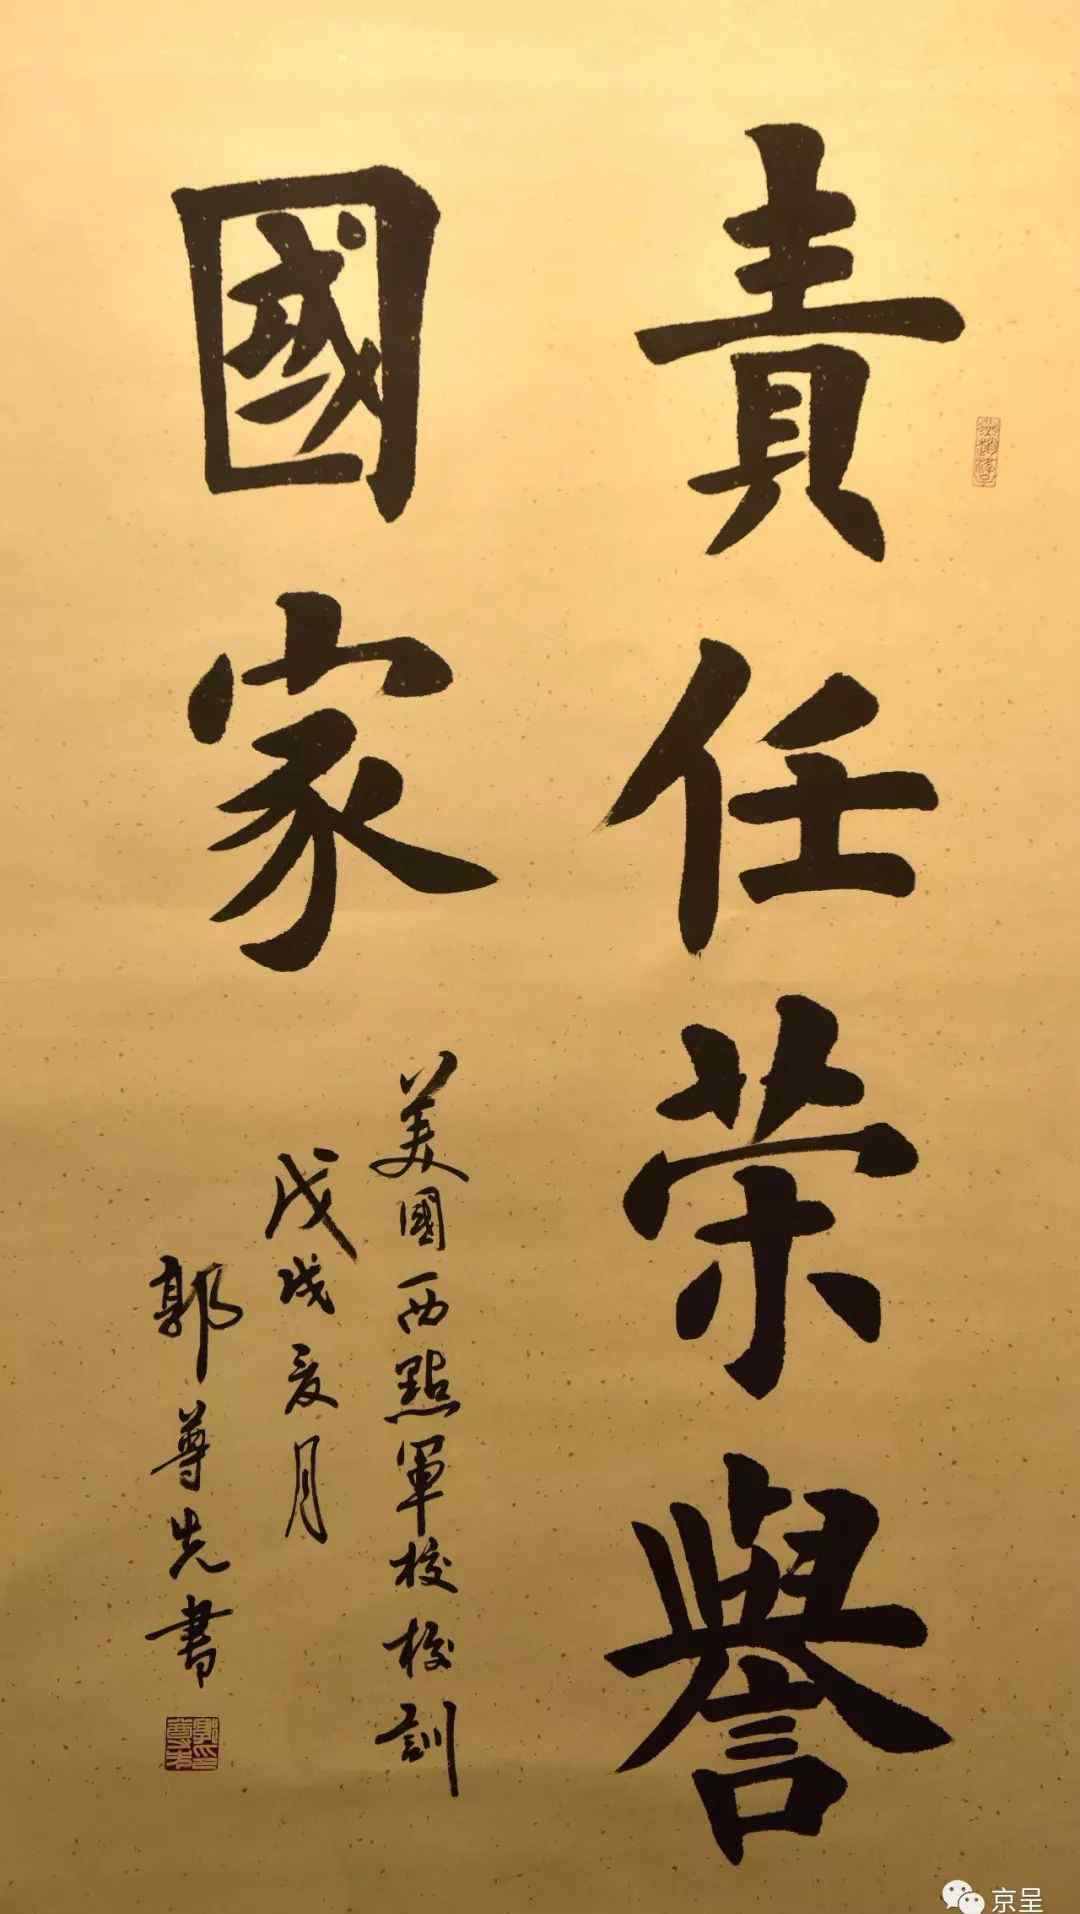 責任荣譽
國家
美國西點軍校校訓
戊戌亥月
郭尊先書
京呈